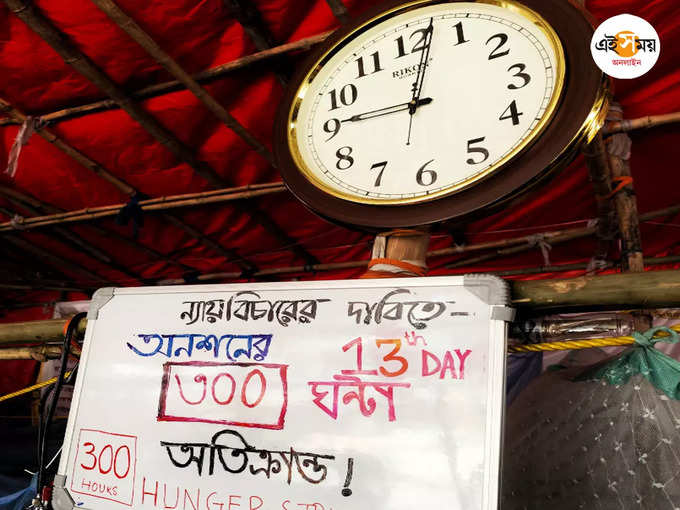 এই সময়
অনলাইন
12
1
2
3
4
5
6
7
8
9
10
11
RIKON
ন্যায়বিচারের দাবিতে-
অনশনের 13th DAY
৩০০ ঘন্টা
অতিক্রান্ত!
300
HOURS
HUNGER